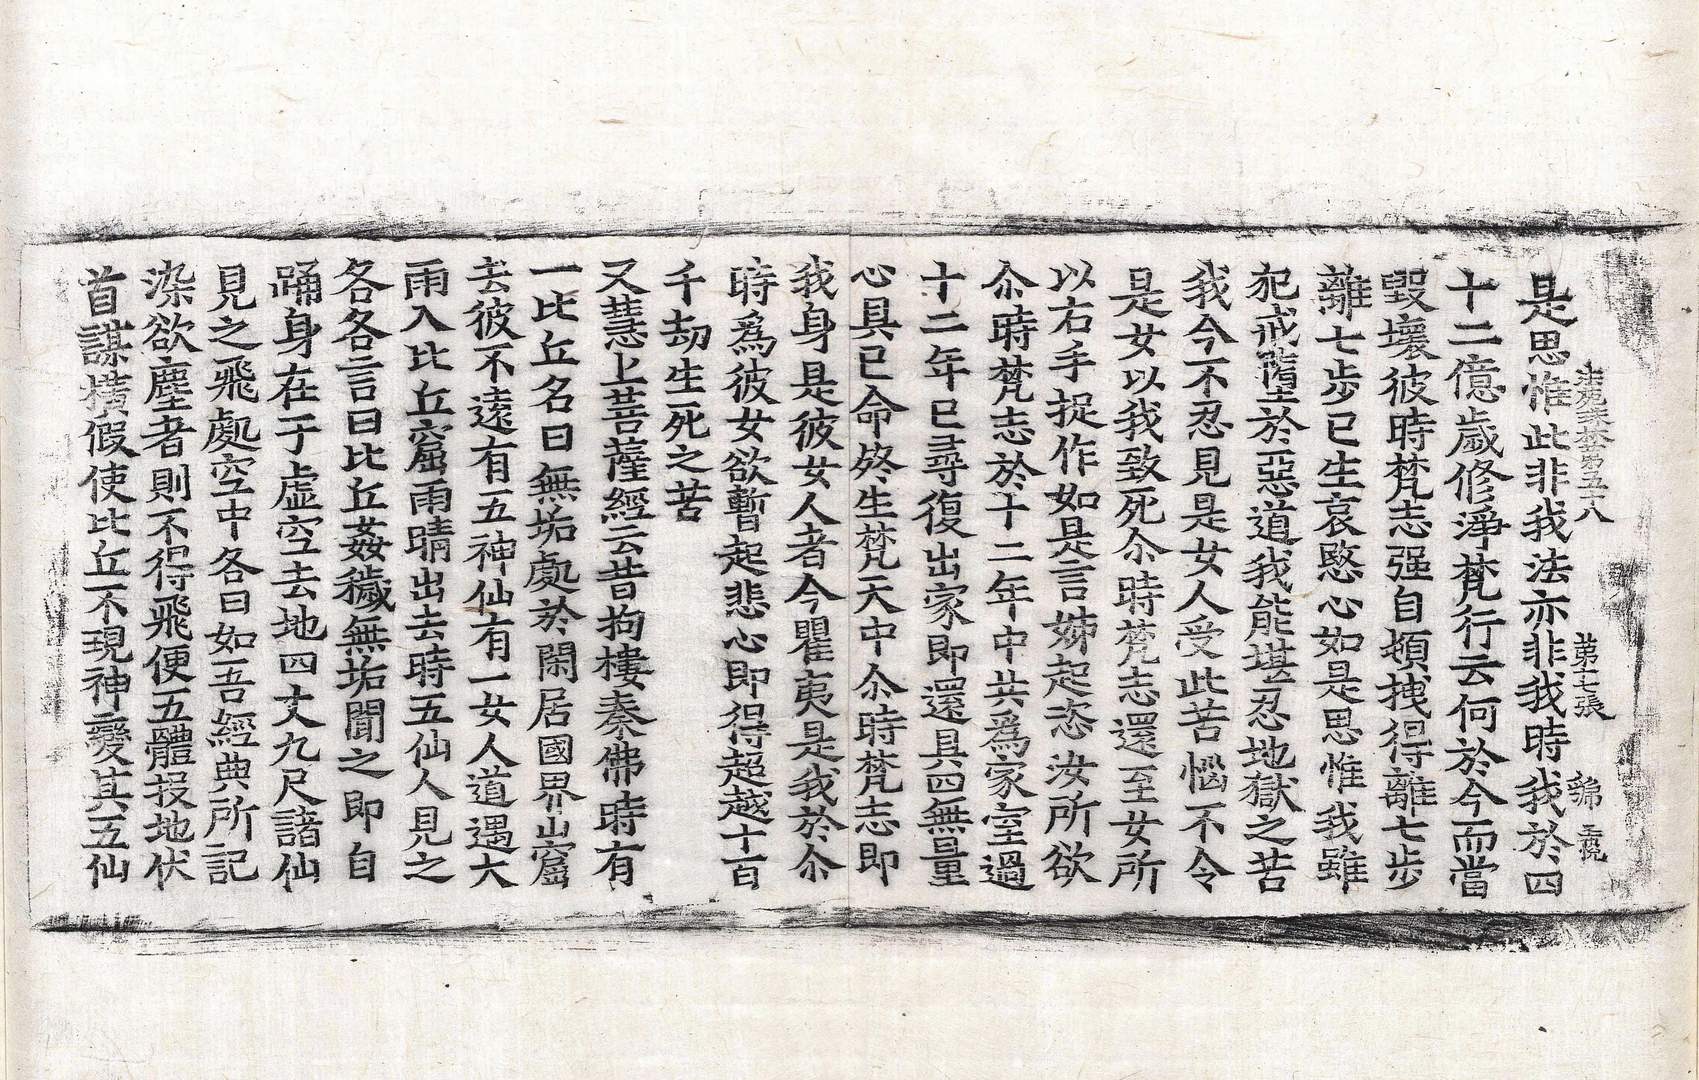 法苑珠林卷第五十八 第十七張 綿
是思惟此非我法亦非我時我於四
十二億歲修淨梵行云何於今而當
毀壞彼時梵志强自頓拽得離七步
離七步已生哀愍心如是思惟我雖
犯戒墮於惡道我能堪忍地獄之苦
我今不忍見是女人受此苦惱不令
是女以我致死尒時梵志還至女所
以右手捉作如是言姊起恣汝所欲
尒時梵志於十二年中共爲家室過
十二年已尋復出家即還具四無量
心具已命終生梵天中尒時梵志即
我身是彼女人者今瞿夷是我於尒
時爲彼女欲暫起悲心即得超越十百
千劫生死之苦
又慧上菩薩經云昔拘樓秦佛時有
一比丘名曰無垢處於閑居國界山窟
去彼不遠有五神仙有一女人道遇大
雨入比丘窟雨晴出去時五仙人見之
各各言曰比丘姦穢無垢聞之即自
踊身在于虛空去地四丈九尺諸仙
見之飛處空中各曰如吾經典所記
染欲塵者則不得飛便五體投地伏
首謀橫假使比丘不現神變其五仙